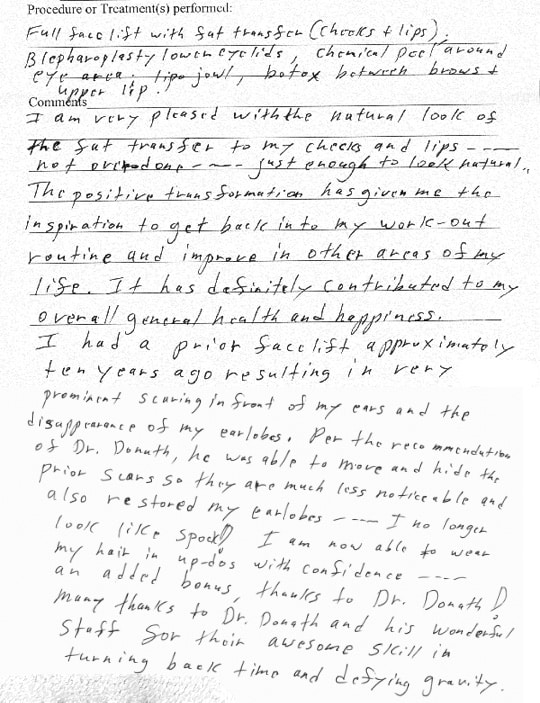 Procedure or Treatment(s) performed:
Full face lift with fat transfer (cheeks & lips).
Blepharoplasty lower eyelids, chemical peel around
eye area. lipo jowl, botox between brows &
upper lip.
Comments
I am very pleased with the natural look of
the fat transfer to my cheeks and lips ----
not overdone ---- just enough to look natural.
The positive transformation has given me the
inspiration to get back into my work-out
routine and improve in other areas of my
life. It has definitely contributed to my
overall general health and happiness.
I had a prior facelift approximately
ten years ago resulting in very
prominent scaring in front of my ears and the
disappearance of my earlobes. Per the recommendation
of Dr. Donath, he was able to move and hide the
prior scars so they are much less noticeable and
also restored my earlobes ---- I no longer
look like Spock! I am now able to wear
my hair in up-dos with confidence ----
an added bonus, thanks to Dr. Donath!
Many thanks to Dr. Donath and his wonderful
staff for their awesome skill in
turning back time and defying gravity.